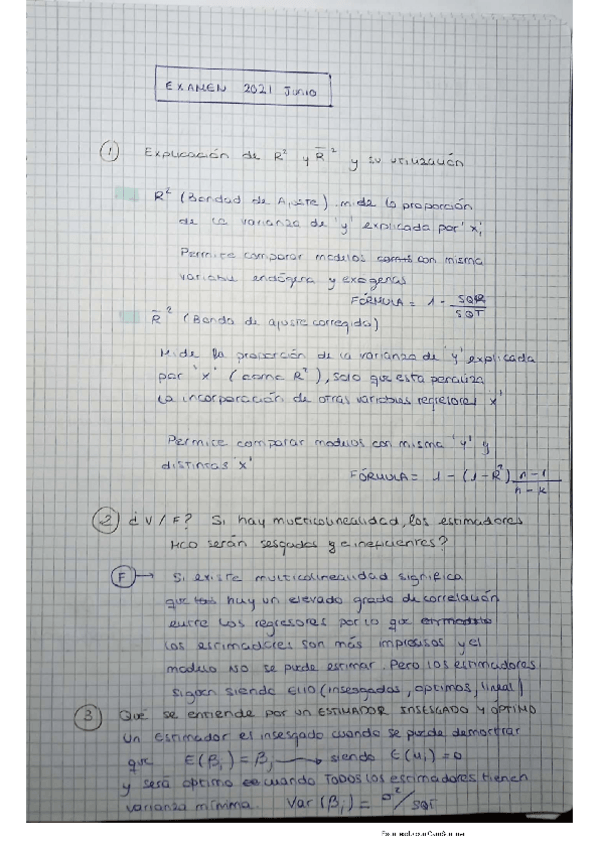 EXAMEN 2021 Junio
① Explicación de R² y R̄² y su utilización
R² (Bondad de Ajuste). mide la proporción
de la varianza de 'y' explicada por 'x',
Permite comparar modelos con misma
variable endógena y exógenas
FÓRMULA = 1 - SQR/SQT
R̄² (Bonda de ajuste corregida)
Mide la proporción de la varianza de 'y' explicada
por 'x' (como R²), solo que esta penaliza
la incorporación de otras variables regresores 'x'
Permite comparar modelos con misma 'y' y
distintas 'x'
FÓRMULA = 1 - (1 - R²) n-1/n-k
② ¿V/F? Si hay multicolinealidad, los estimadores
MCO serán sesgados y e ineficientes?
Ⓕ→ Si existe multicolinealidad significa
que hay un elevado grado de correlación
entre los regresores por lo que
los estimadores son más imprecisos y el
modelo NO se puede estimar. Pero los estimadores
siguen siendo ELIO (insesgados, óptimos, lineal)
③ Qué se entiende por un ESTIMADOR INSESGADO Y ÓPTIMO
Un estimador es insesgado cuando se puede demostrar
que E(βⱼ) = βⱼ → siendo E(uᵢ) = 0
y será óptimo cuando TODOS LOS estimadores tienen
varianza mínima. Var(βⱼ) = σ²/SQT